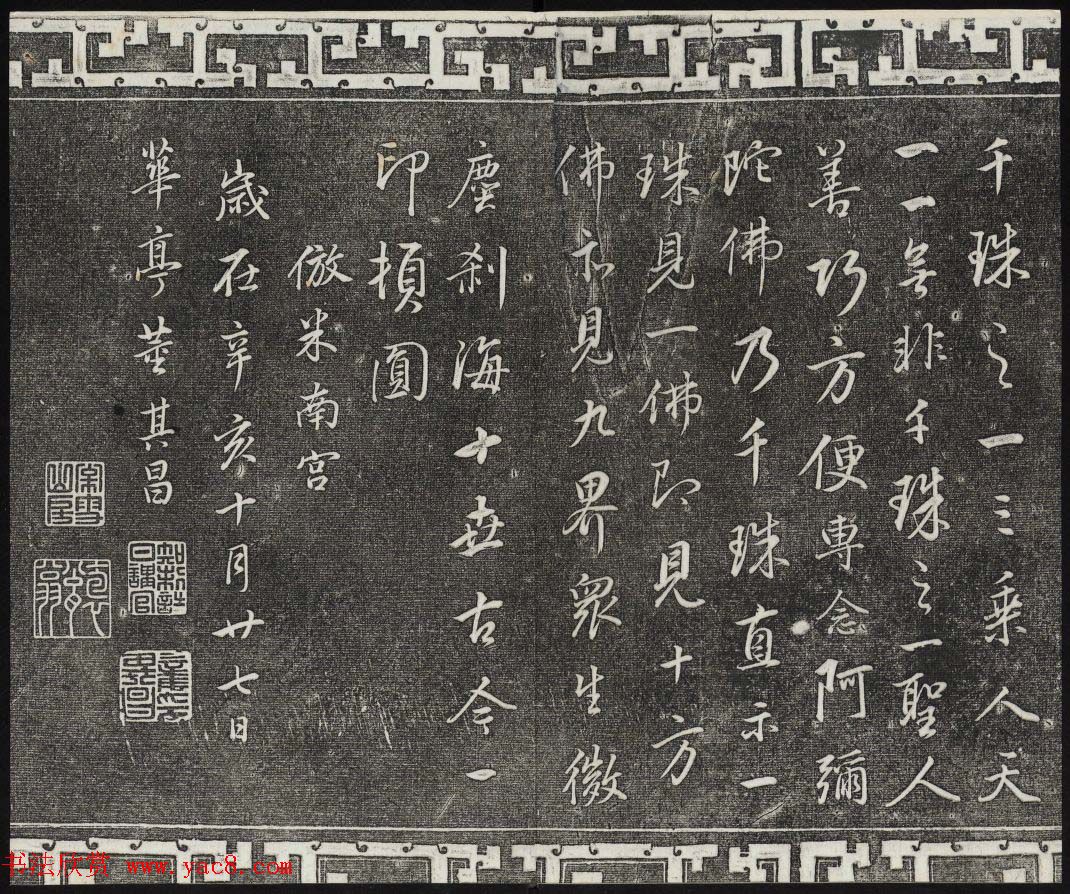 千珠之一三乘人天
一一無非千珠之一聖人
善巧方便專念阿彌
陀佛乃千珠直示一
珠見一佛即見十方
佛示見九界眾生微
塵刹海十世古今一
印頓圓
倣米南宮
歲在辛亥十月廿七日
華亭董其昌
知制誥日講官
董氏玄宰
书法欣赏 www.yac8.com